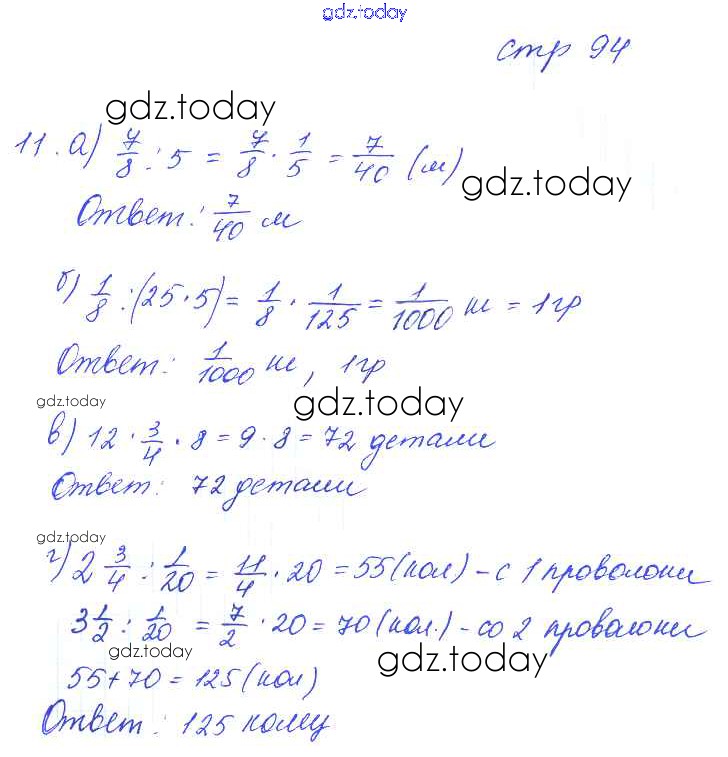 gdz.today
стр 94
gdz.today
11. а) 7/8 : 5 = 7/8 · 1/5 = 7/40 (м)
gdz.today
Ответ: 7/40 м
б) 1/8 : (25 · 5) = 1/8 · 1/125 = 1/1000 кг = 1 гр
Ответ: 1/1000 кг, 1 гр
gdz.today gdz.today
в) 12 · 3/4 · 8 = 9 · 8 = 72 детали
Ответ: 72 детали
gdz.today
г) 2 3/4 : 1/20 = 11/4 · 20 = 55 (кол) – с 1 проволоки
3 1/2 : 1/20 = 7/2 · 20 = 70 (кол.) – со 2 проволоки
gdz.today gdz.today
55 + 70 = 125 (кол)
Ответ: 125 колец